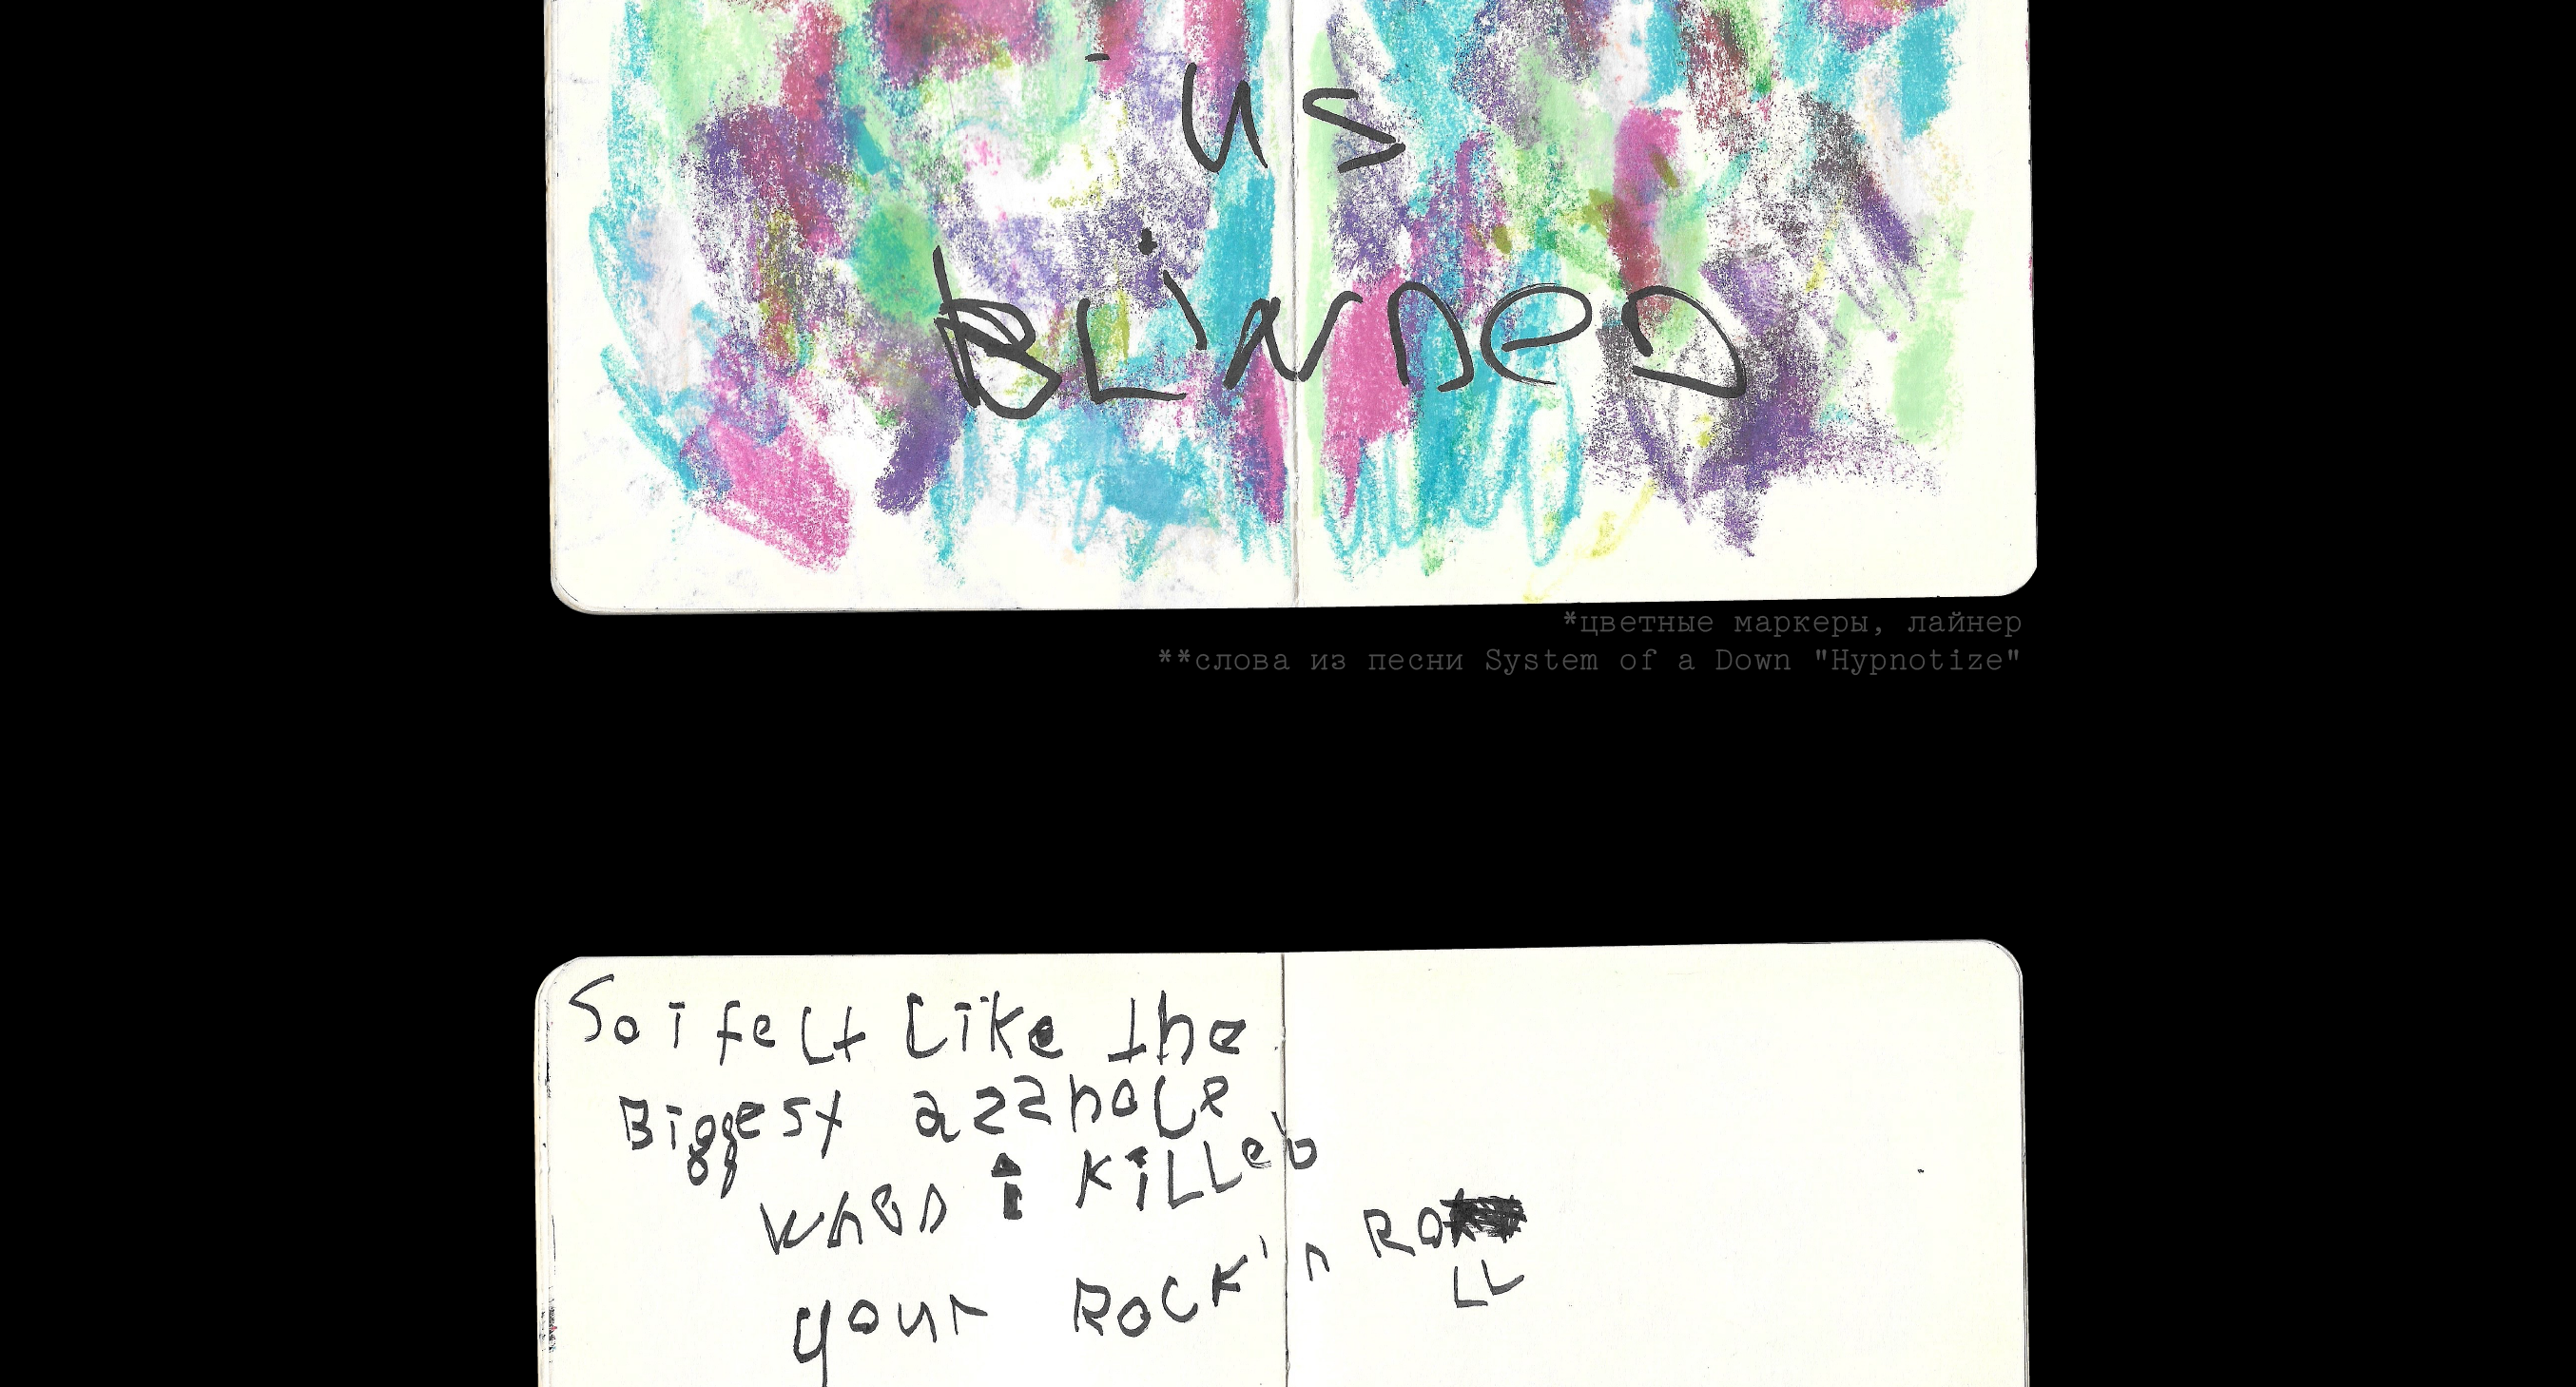 us
BLinDeD
*цветные маркеры, лайнер
**слова из песни System of a Down "Hypnotize"
So i feLt Like the
Biggest azzhoLe
when i KiLLeD
your Rock'n Ro
LL